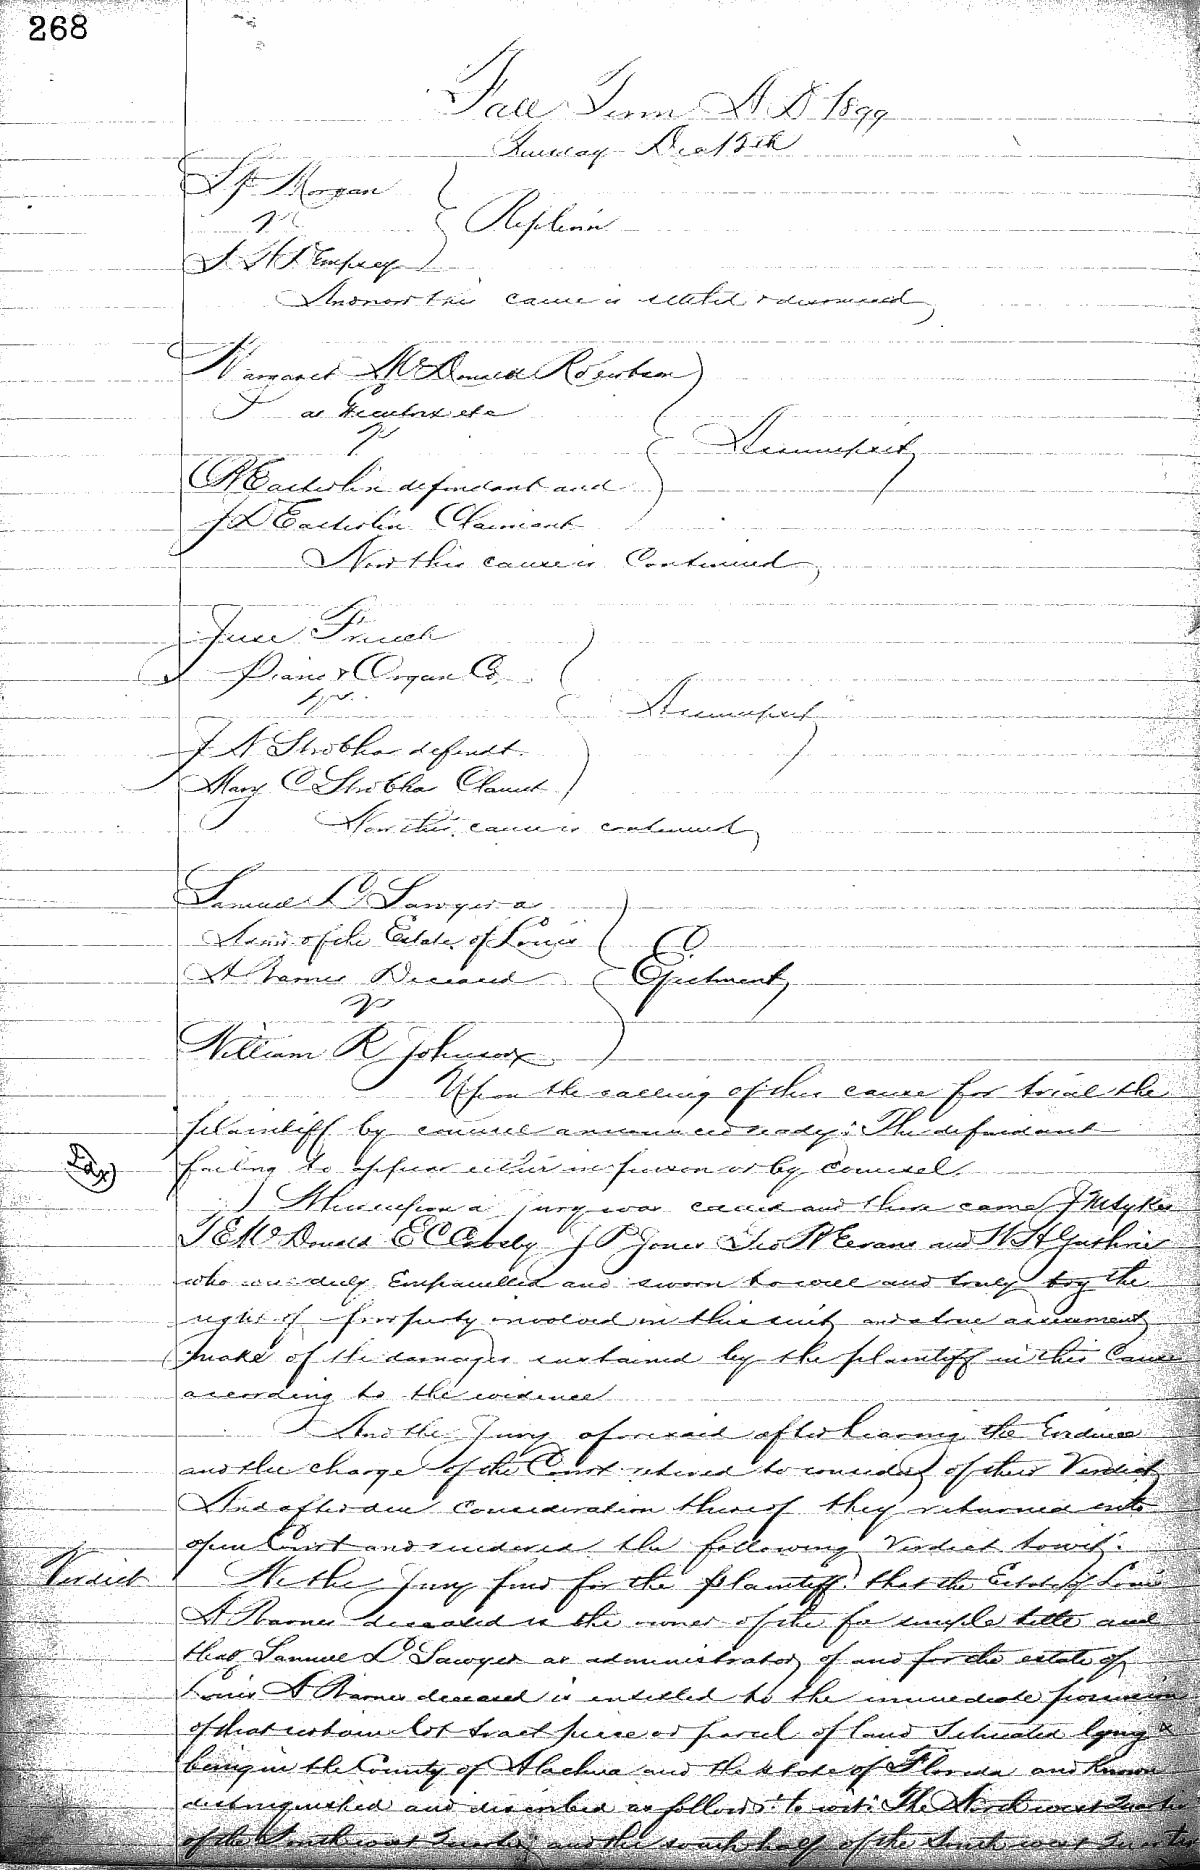 268
Fall Term A D 1899
Tuesday Dec 12th
Morgan
vs
Replevin
And now this cause is settled & dismissed
Margaret McDonald Robertson
as Executrix etc
vs
Assumpsit
Easterlin defendant and
J D Easterlin Claimant
Now this cause is Continued
Jesse French
Piano & Organ Co
vs.
Assumpsit
J N Strobhar defendt.
Mary C Strobhar Claimt
Now this cause is continued
Samuel D Sawyer a
Admr of the Estate of Louis
A Barnes Deceased
Ejectment
vs
William R Johnson
Upon the calling of this cause for trial the
plaintiff by counsel announced ready; The defendant
failing to appear either in person or by counsel.
Whereupon a jury was called and there came J M Sykes
T E McDonald E C J P Jones Geo W Evans and W H Guthrie
who were duly Empanelled and sworn to well and truly try the
right of property involved in this suit and a true assessment
make of the damages sustained by the plaintiff in this Cause
according to the evidence
And the Jury aforesaid after hearing the Evidence
and the charge of the Court retired to consider of their Verdict
And after due consideration thereof they returned into
open Court and rendered the following Verdict towit:
Verdict
We the Jury find for the Plaintiff: that the Estate of Louis
A Barnes deceased is the owner of the fee simple title and
that Samuel D Sawyer as administrator of and for the estate of
Louis A Barnes deceased is entitled to the immediate possession
of that certain lot tract piece or parcel of land Situated lying &
being in the County of Alachua and the state of Florida and known
distinguished and described as follows: to wit: The North west Quarter
of the South west Quarter and the south half of the South west Quarter